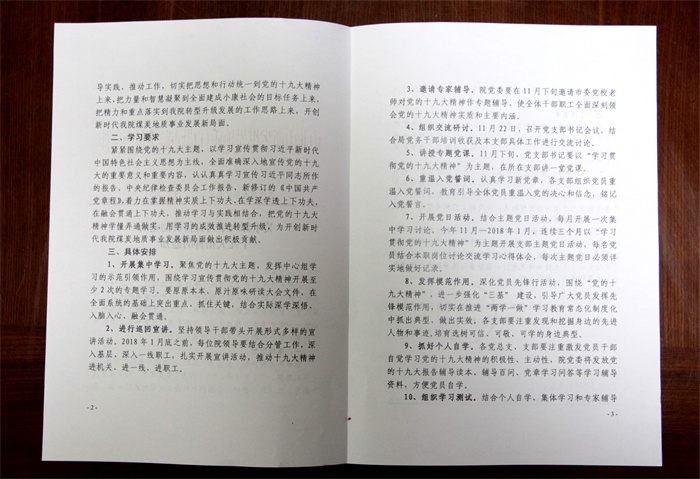 导实践、推动工作，切实把思想和行动统一到党的十九大精神
上来，把力量和智慧凝聚到全面建成小康社会的目标任务上来，
把精力和重点落实到我院转型升级发展的工作思路上来，开创
新时代我院煤炭地质事业发展新局面。
二、学习要求
紧紧围绕党的十九大主题，以学习宣传贯彻习近平新时代
中国特色社会主义思想为主线，全面准确深入地宣传党的十九大
的重要意义和重要内容，认认真真学习习近平同志所作
的报告、中央纪律检查委员会工作报告、新修订的《中国共产
党章程》，着力在掌握精神实质上下功夫、在学深学透上下功夫、
在融会贯通上下功夫，推动学习与实践相结合，把党的十九大
精神学懂弄通做实，用学习的成效推进转型升级，为开创新时
代我院煤炭地质事业发展新局面做出积极贡献。
三、具体安排
1、开展集中学习。聚焦党的十九大主题，发挥中心组学
习的示范引领作用，围绕学习宣传贯彻党的十九大精神开展至
少2次的专题学习。要原原本本、原汁原味研读大会文件，在
全面系统的基础上突出重点、抓住关键，结合实际深学深悟、
入脑入心，融会贯通。
2、进行巡回宣讲。坚持领导干部带头开展形式多样的宣
讲活动。2018年1月底之前，每位院领导要结合分管工作，深
入基层、深入一线职工，扎实开展宣讲活动，推动十九大精神
进机关，进一线、进职工。
- 2 -
3、邀请专家辅导。院党委要在11月下旬邀请市委党校老
师对党的十九大精神作专题辅导，使全体干部职工全面深刻领
会党的十九大精神实质和主要内涵。
4、组织交流研讨。11月22日，召开党支部书记会议，结
合局党务干部培训收获及本支部具体工作进行交流讨论。
5、讲授专题党课。11月下旬，党支部书记要以“学习贯
彻党的十九大精神”为主题，在所在支部讲一堂党课。
6、重温入党誓词。认真学习新党章，各支部组织党员重
温入党誓词，教育引导全体党员重温入党的决心和信念，铭记
入党誓言。
7、开展党日活动。结合主题党日活动，每月开展一次集
中学习讨论。今年11月—2018年1月，连续三个月以“学习
贯彻党的十九大精神”为主题开展支部主题党日活动，每名党
员结合本职岗位讨论交流学习心得体会。每次主题党日必须详
实地做好记录。
8、发挥模范作用。深化党员先锋行活动，围绕“党的十
九大精神”，进一步强化“三基”建设，引导广大党员发挥先
锋模范作用，切实在推进“两学一做”学习教育常态化制度化
中抓出典型、做出实效。各支部要注重发现和挖掘身边的先进
人物和事迹，培育选树可信、可敬、可学的身边典型。
9、抓好个人自学。各党总支、支部要注重激发党员干部
自觉学习党的十九大精神的积极性、主动性，院党委将发放党
的十九大报告辅导读本、辅导百问、党章学习问答等学习辅导
资料，方便党员自学。
10、组织学习测试。结合个人自学，集体学习和专家辅导
- 3 -